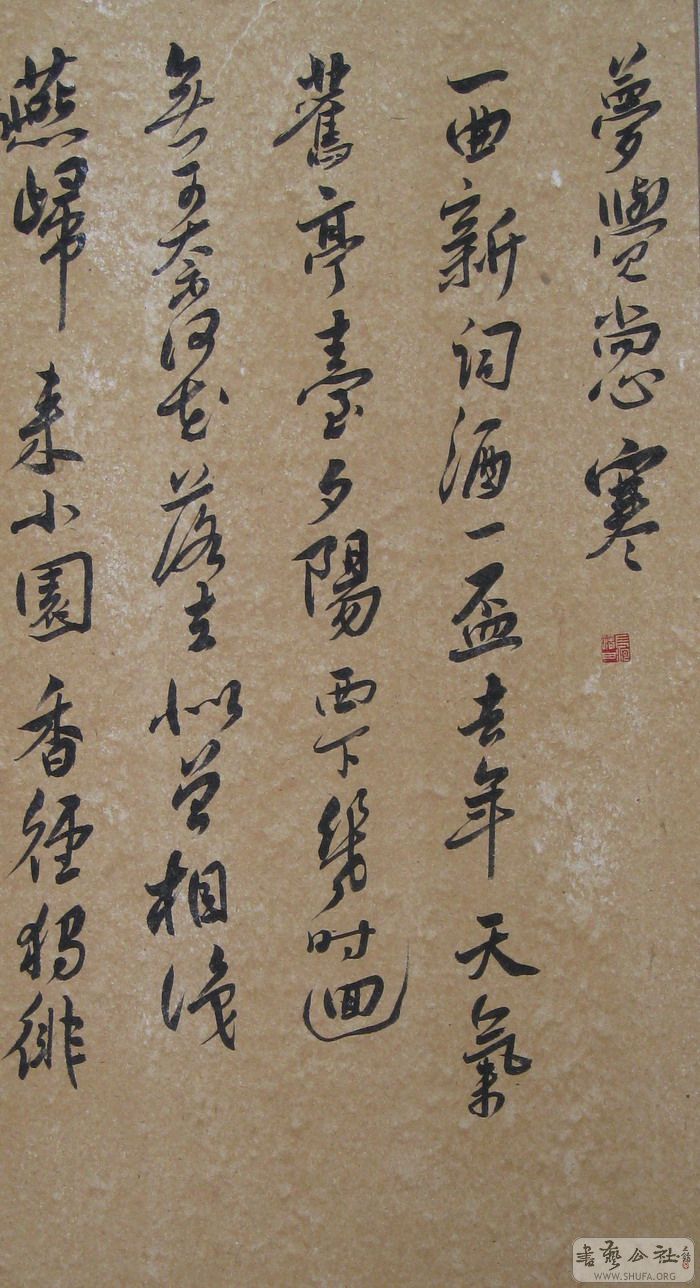 夢覺尚愡寒
一曲新词酒一盃去年天氣
舊亭臺夕陽西下幾时迴
無可奈何花落去似曾相識
燕歸来小園香徑獨徘
書藝公社
WWW.SHUFA.ORG